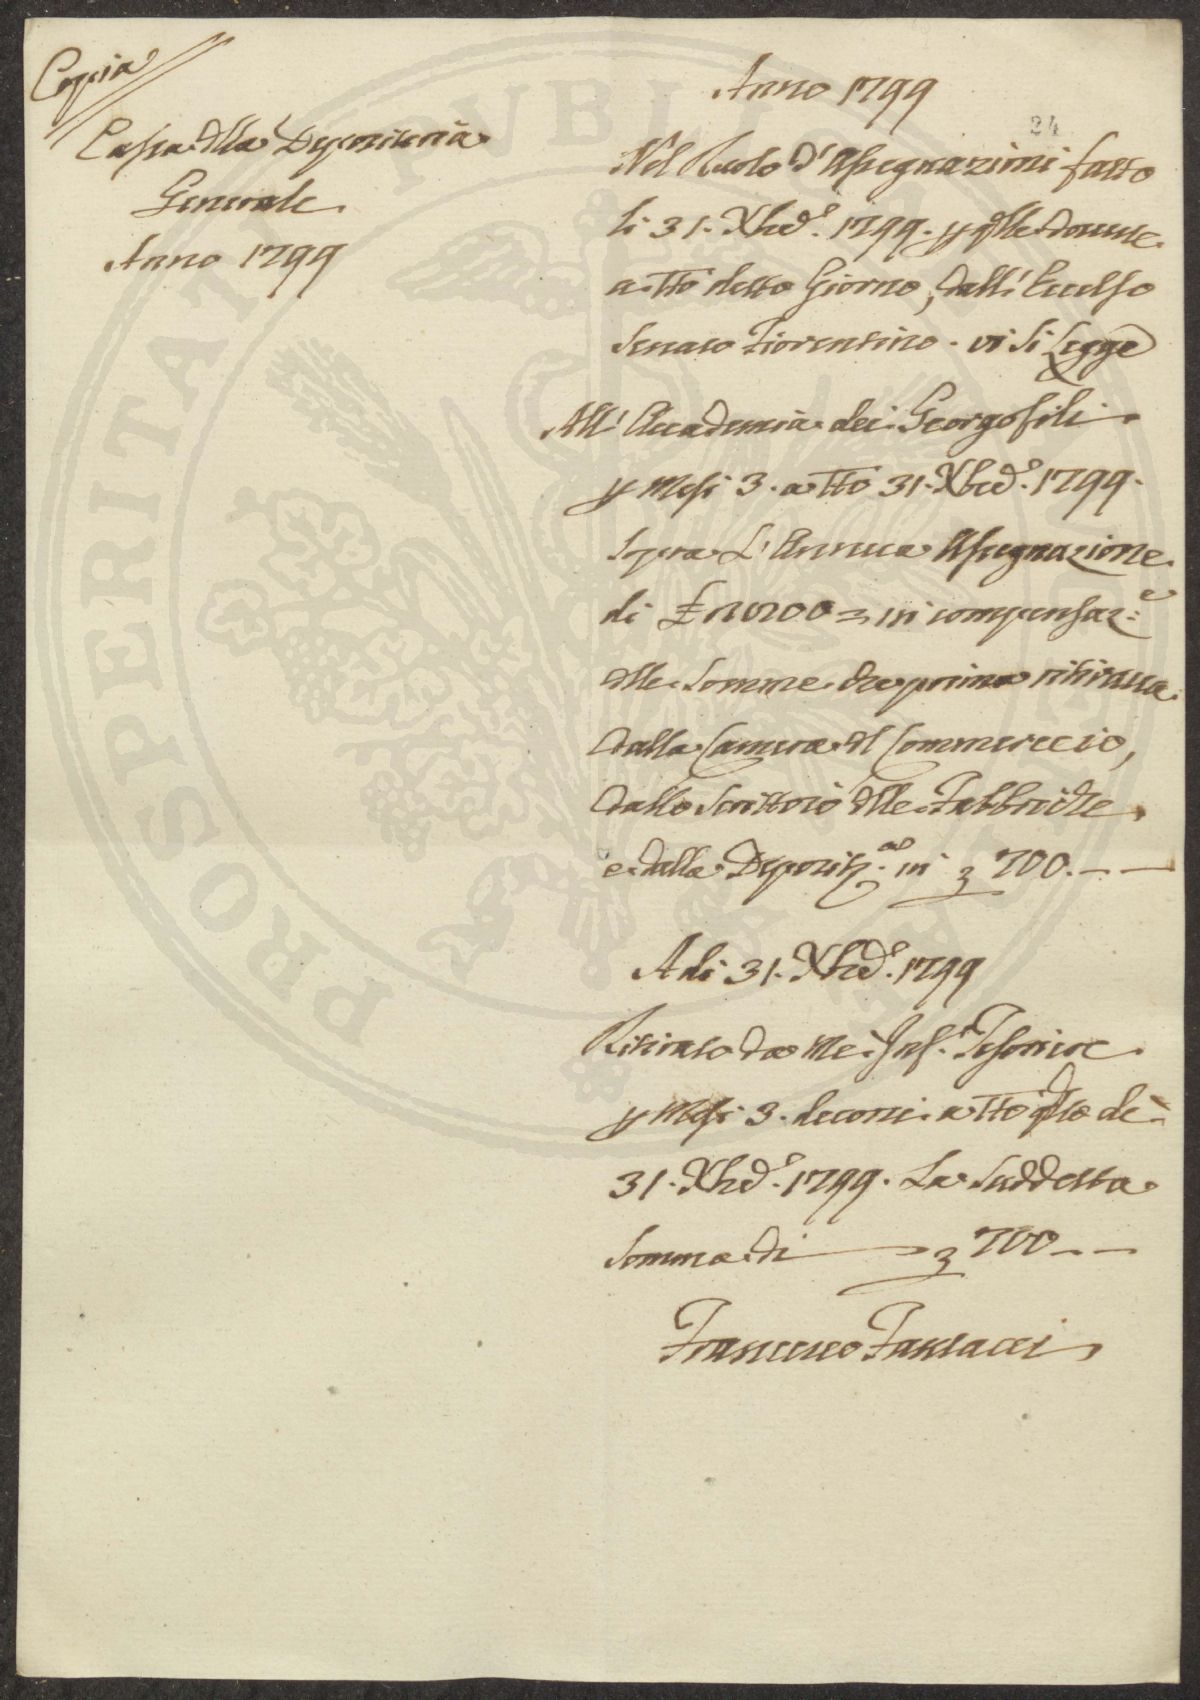 Copia
Cassa della Depositeria
Generale
Anno 1799
Anno 1799
24
Nel Ruolo d'Assegnazioni fatto
li 31. Xbre. 1799. p qlle dovute
a tto detto Giorno, dall' Eccelso
Senato Fiorentino. vi si Legge
All' Accademia dei Georgofili
p Mesi 3. a tto 31. Xbre. 1799.
sopra L'Annua Assegnazione
di in compensaz:e
dlle somme da prima ritirata
dalla Camera dl Commercio,
dallo Scrittoio dlle Fabbriche
e dalla in 700. — —
A di 31. Xbre. 1799
Ritirato da Me Inf. Tesoriere
p Mesi 3. decorsi a tto qsto dì
31. Xbre. 1799. La suddetta
somma di 700 — —
Francesco
PROSPERITATI PUBLICAE